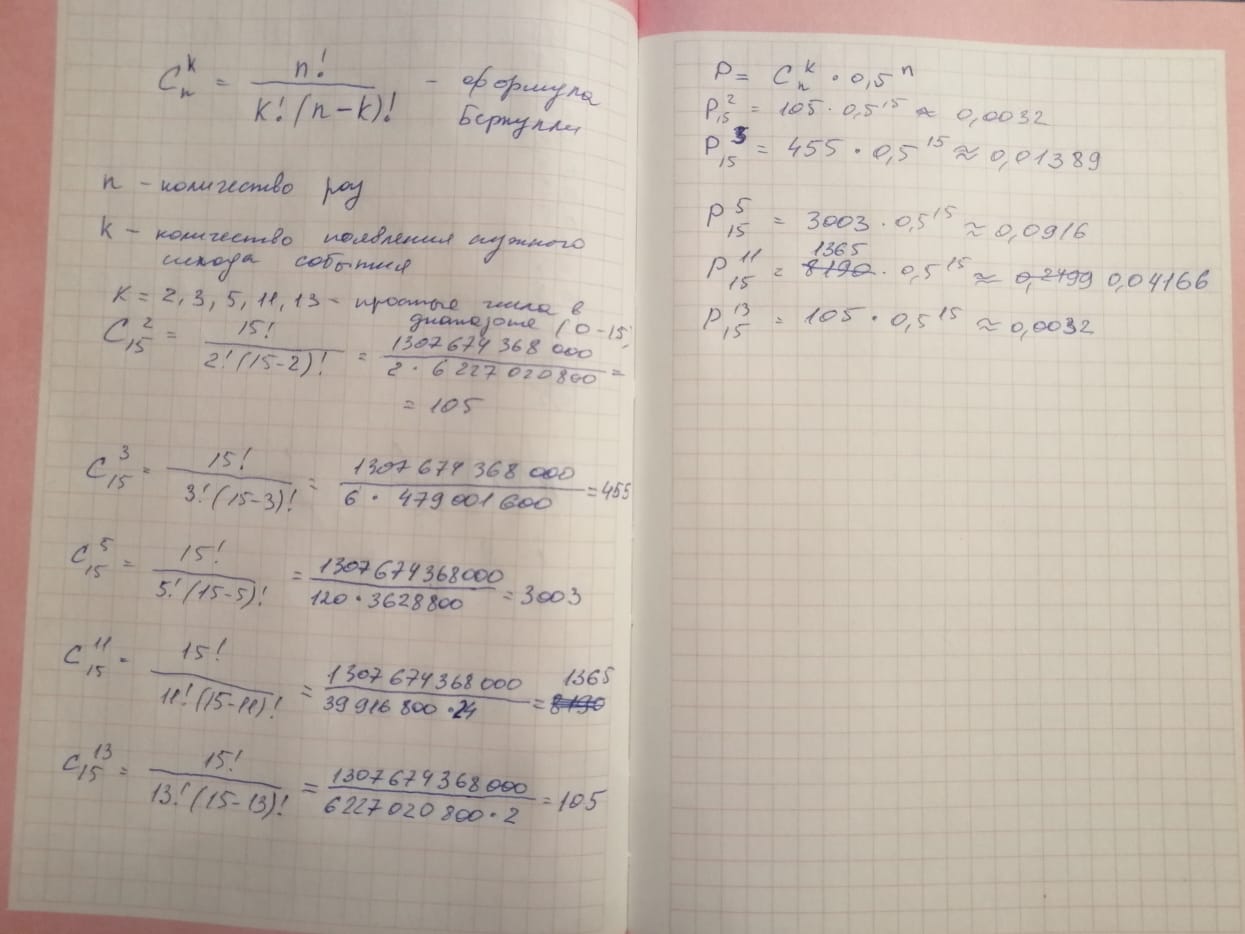 C_n^k = n! / k!(n-k)! - формула
Бернулли
n - количество раз
k - количество появления нужного
исхода события
K = 2, 3, 5, 11, 13 - простые числа в
диапазоне (0-15)
C_15^2 = 15! / 2!(15-2)! = 1307674368000 / 2 · 6227020800 =
= 105
C_15^3 = 15! / 3!(15-3)! = 1307674368000 / 6 · 479001600 = 455
C_15^5 = 15! / 5!(15-5)! = 1307674368000 / 120 · 3628800 = 3003
C_15^11 = 15! / 11!(15-11)! = 1307674368000 / 39916800 · 24 = 8190 1365
C_15^13 = 15! / 13!(15-13)! = 1307674368000 / 6227020800 · 2 = 105
P = C_n^k · 0,5^n
P_15^2 = 105 · 0,5^15 ≈ 0,0032
P_15^3 = 455 · 0,5^15 ≈ 0,01389
P_15^5 = 3003 · 0,5^15 ≈ 0,0916
P_15^11 = 8190 1365 · 0,5^15 ≈ 0,2499 0,04166
P_15^13 = 105 · 0,5^15 ≈ 0,0032